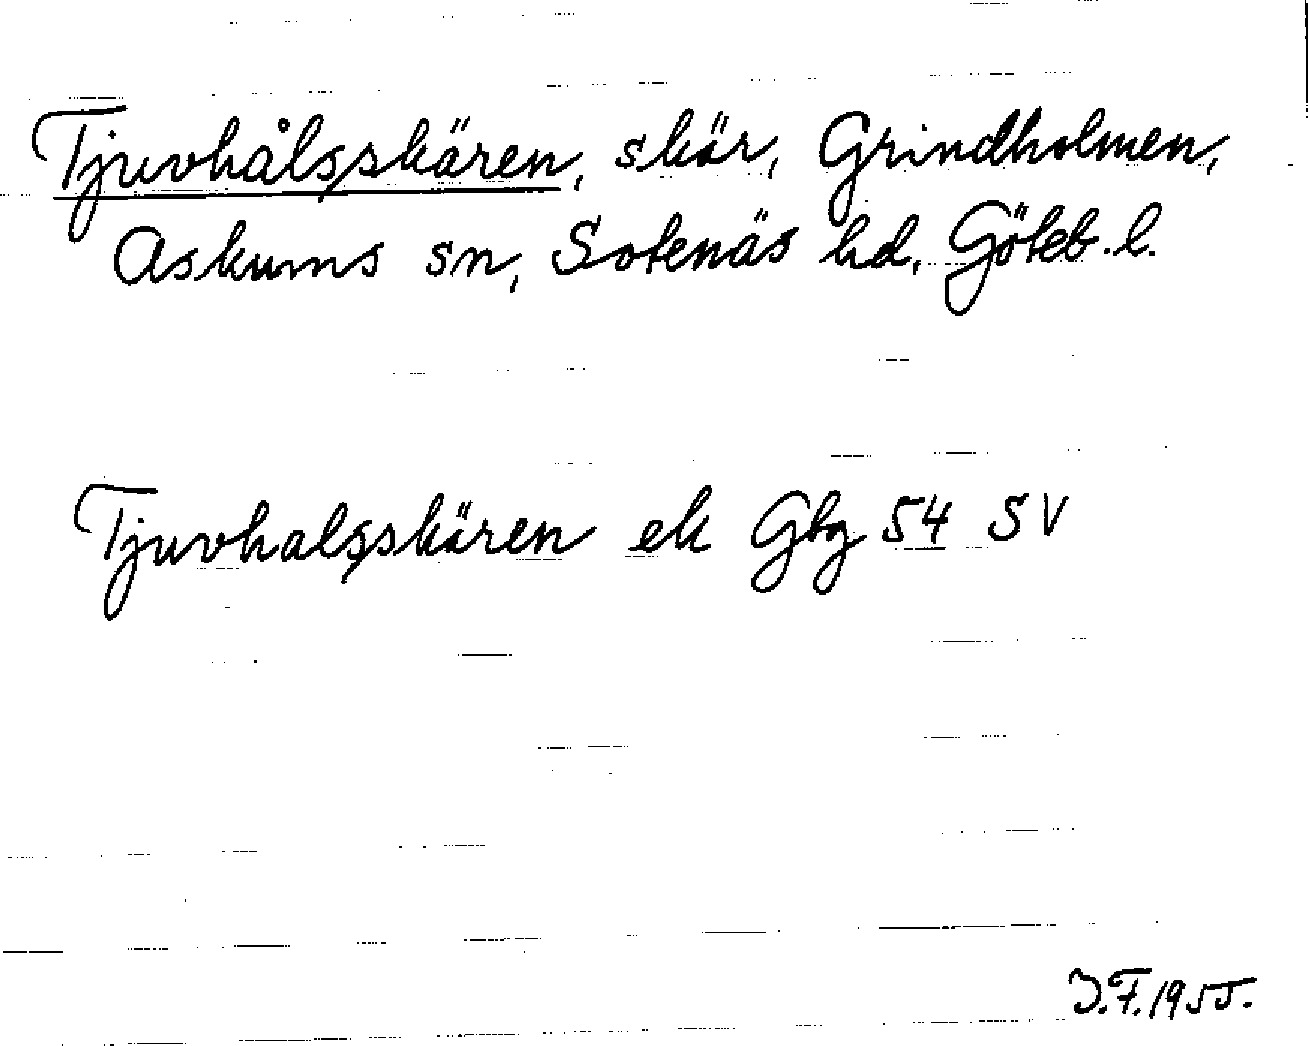 Tjuvhålsskären, skär, Grindholmen,
Askums sn, Sotenäs hd, Göteb. l.
Tjuvhalsskären ek Gbg 54 SV
J.F. 1955.